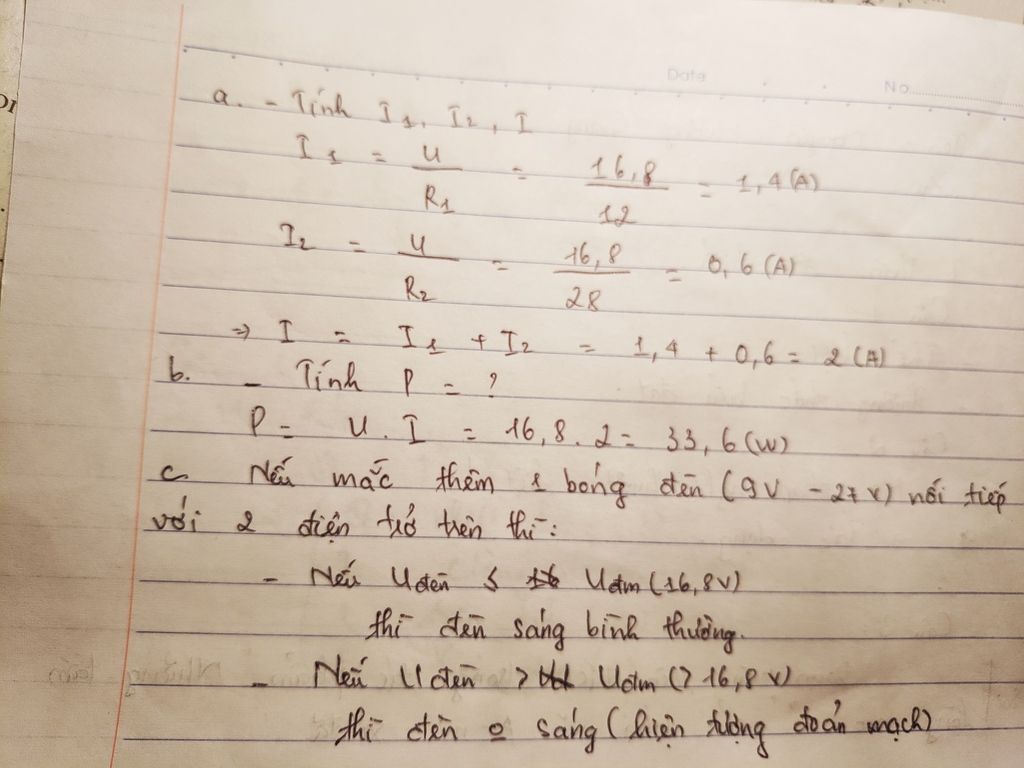 Date No
a. - Tính I1, I2, I
I1 = U/R1 = 16,8/12 = 1,4 (A)
I2 = U/R2 = 16,8/28 = 0,6 (A)
=> I = I1 + I2 = 1,4 + 0,6 = 2 (A)
b. - Tính P = ?
P = U . I = 16,8 . 2 = 33,6 (W)
c Nếu mắc thêm 1 bóng đèn (9V - 27V) nối tiếp
với 2 điện trở trên thì:
- Nếu Uđèn ≤ Uđm (16,8V)
thì đèn sáng bình thường.
- Nếu Uđèn > Uđm (> 16,8V)
thì đèn o sáng (hiện tượng đoản mạch)